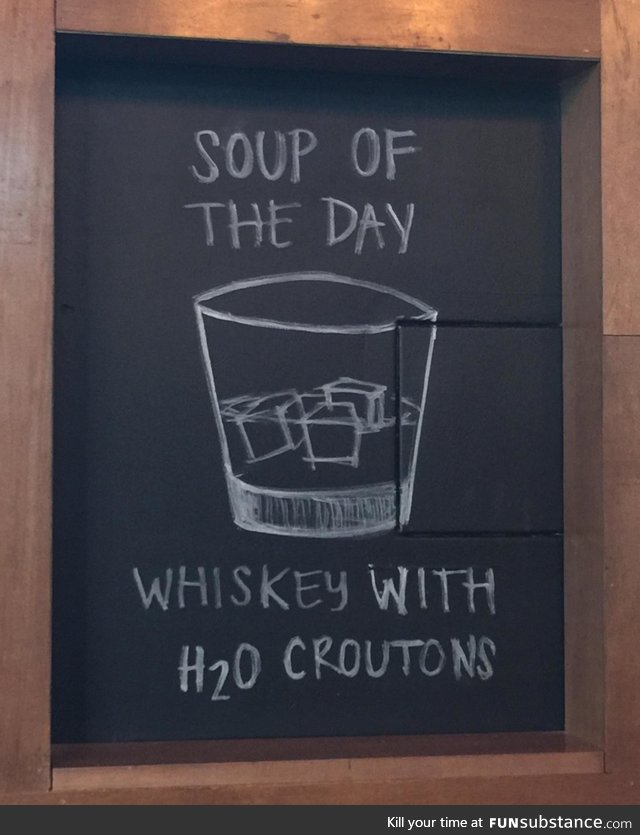 SOUP OF
THE DAY
WHISKEY WITH
H2O CROUTONS
Kill your time at FUNsubstance.com